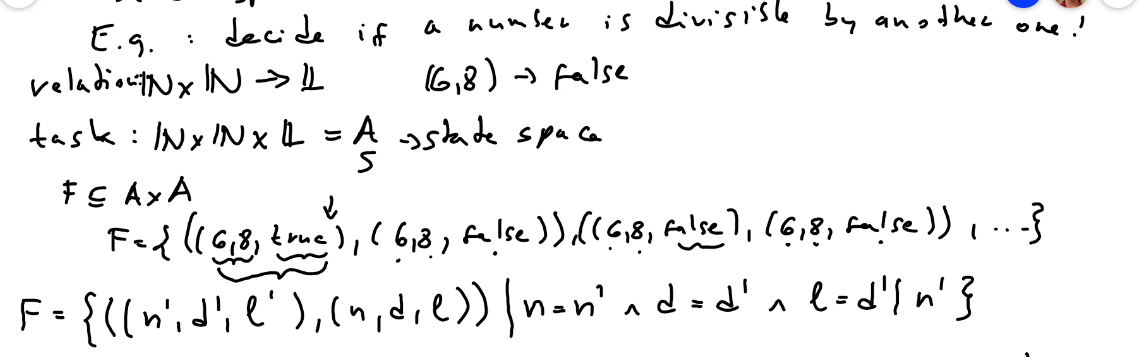 E.g. : decide if a number is divisible by another one!
relation: ℕ × ℕ → 𝕃 (6,8) → false
task : ℕ × ℕ × 𝕃 = A → state space
S
F ⊆ A × A
F = { ((6,8, true), (6,8, false)), ((6,8, false), (6,8, false)), ... }
F = {((n', d', l'), (n, d, l)) | n = n' ∧ d = d' ∧ l = d' | n' }